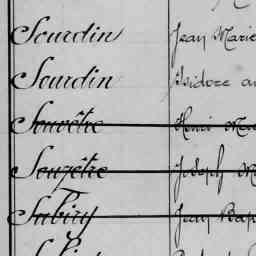 Sourdin Jean Marie
Sourdin Isidore
Souvêtre Henri
Souvêtre Joseph
Subiry Jean Bap